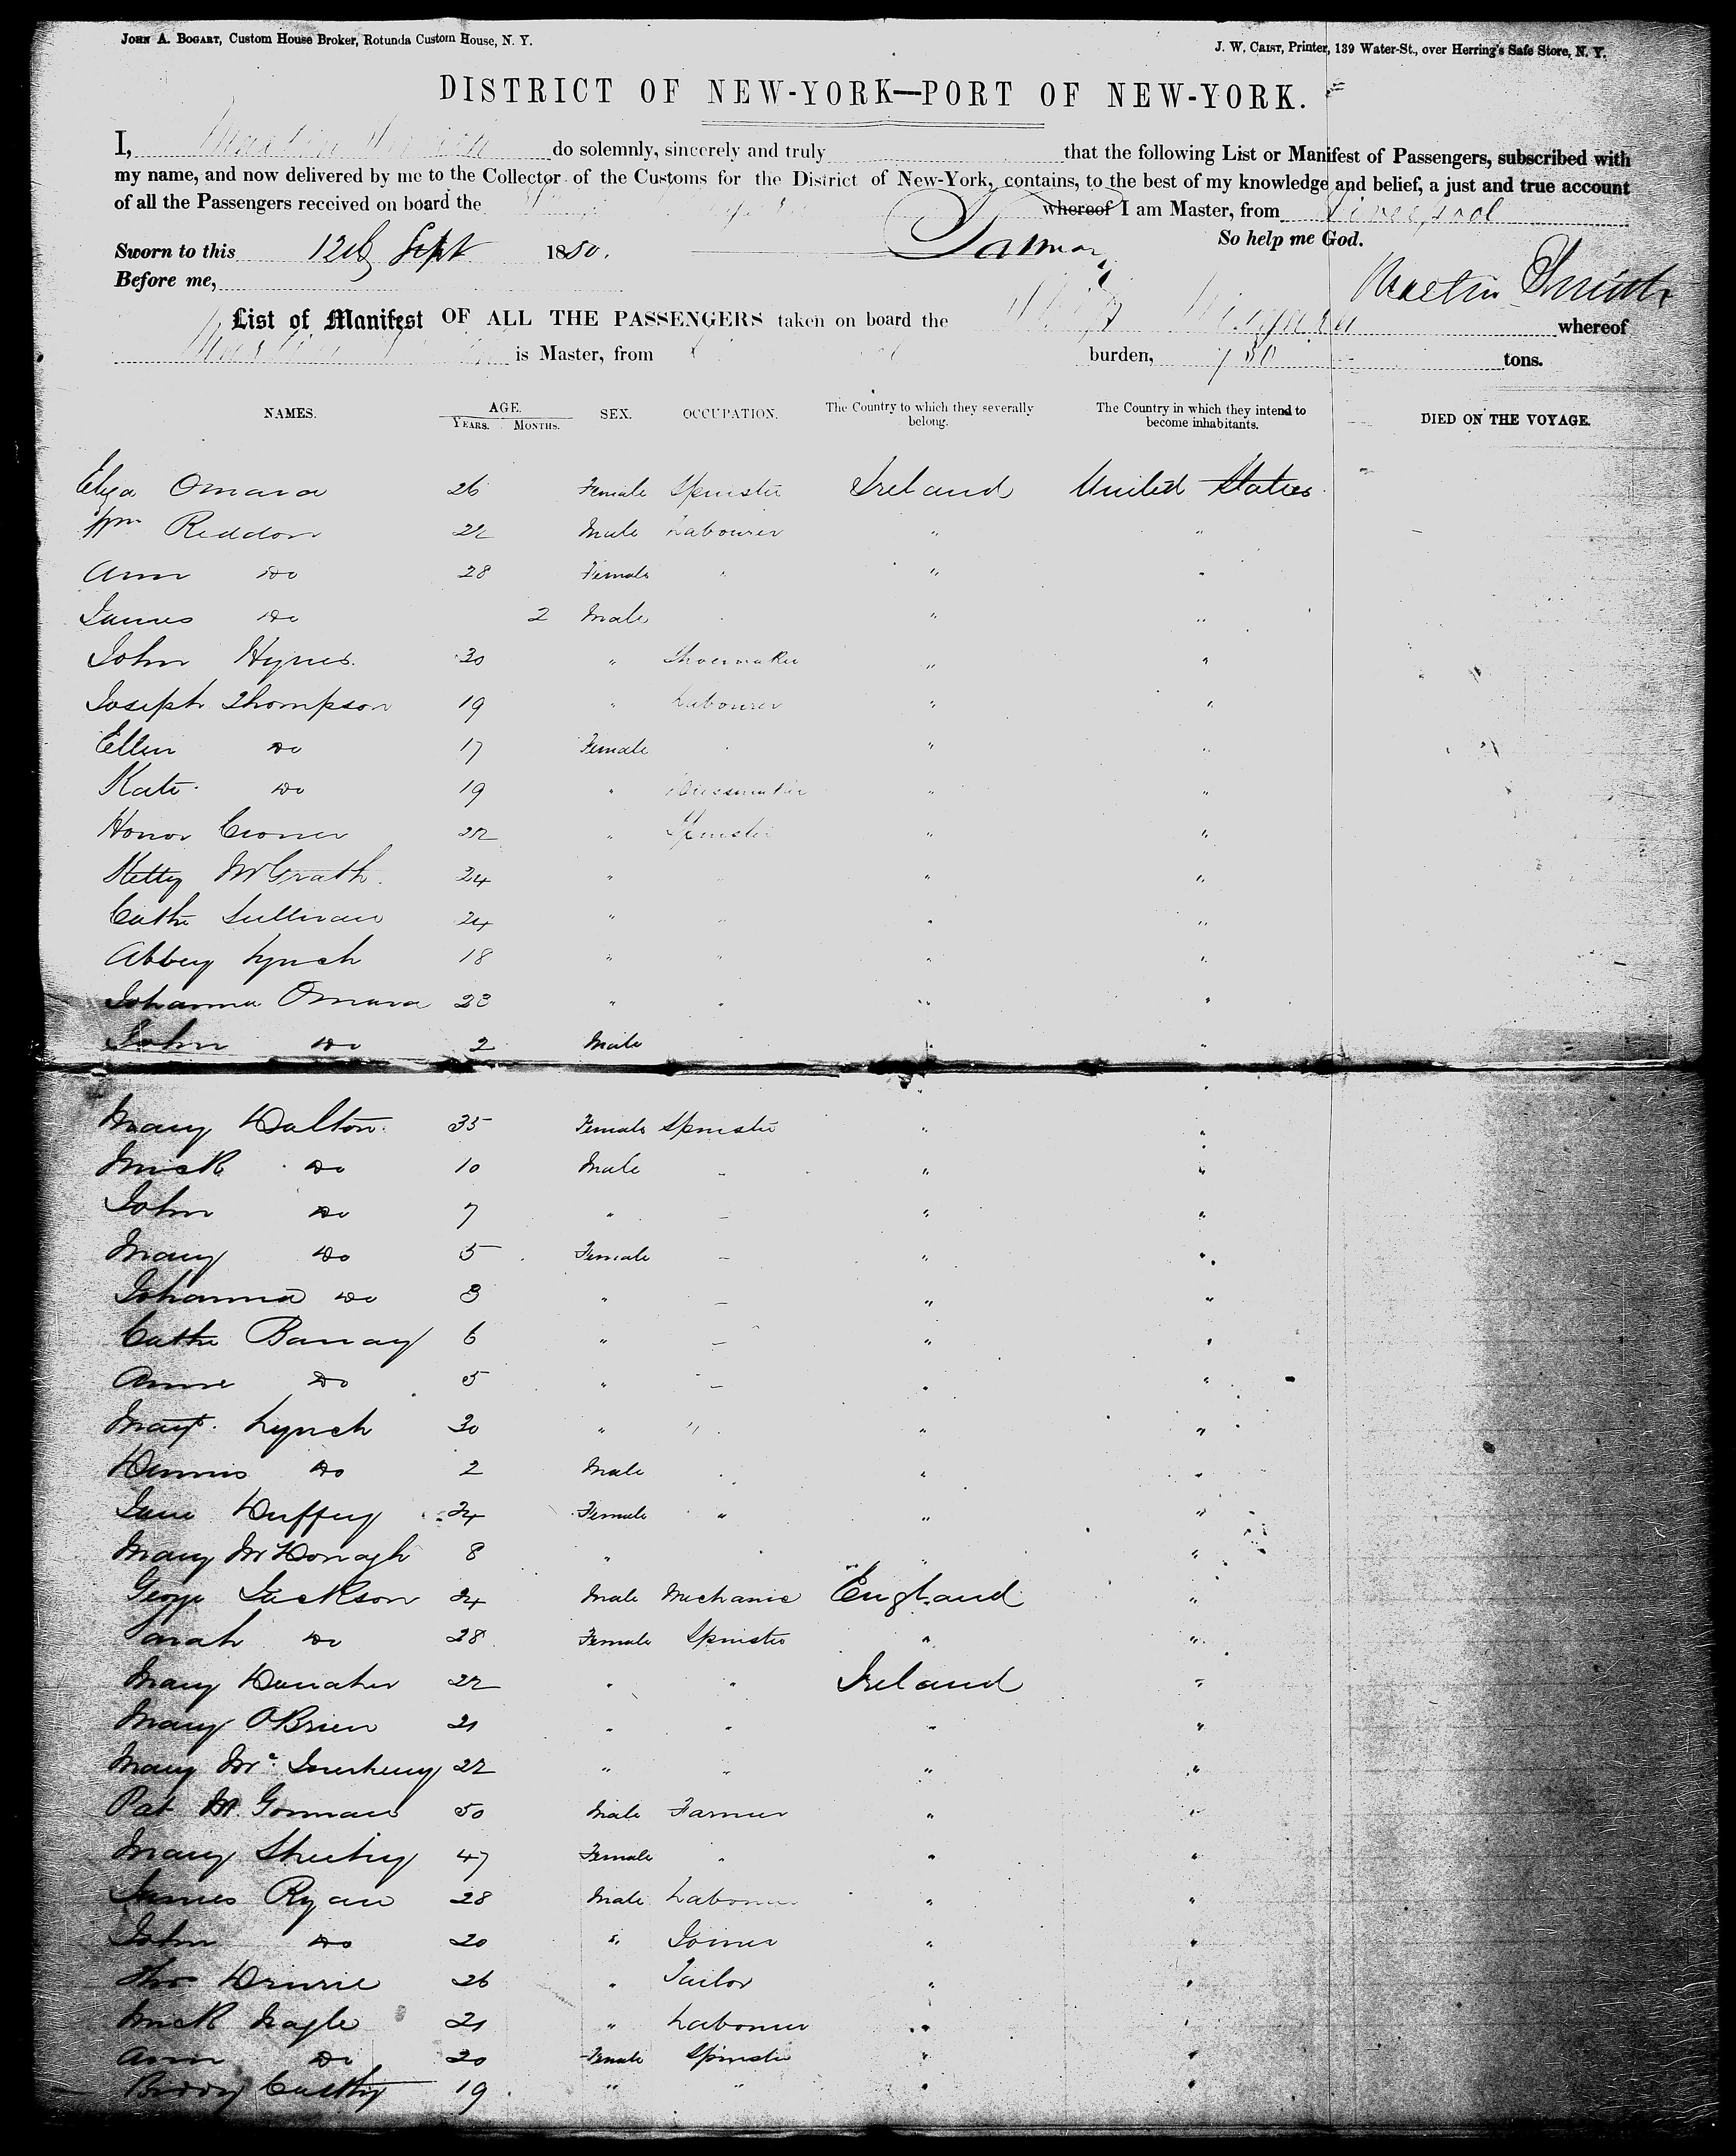 JOHN A. BOGART, Custom House Broker, Rotunda Custom House, N. Y.
J. W. CRIST, Printer, 139 Water-St., over Herring's Safe Store, N. Y.
DISTRICT OF NEW-YORK—PORT OF NEW-YORK.
I, Martin Smith do solemnly, sincerely and truly that the following List or Manifest of Passengers, subscribed with
my name, and now delivered by me to the Collector of the Customs for the District of New-York, contains, to the best of my knowledge and belief, a just and true account
of all the Passengers received on board the whereof I am Master, from Liverpool
Sworn to this 12th Sept 1850. So help me God.
Before me, Martin Smith
List of Manifest OF ALL THE PASSENGERS taken on board the Ship whereof
Martin is Master, from burden, 730 tons.
NAMES. AGE. YEARS. MONTHS. SEX. OCCUPATION. The Country to which they severally belong. The Country in which they intend to become inhabitants. DIED ON THE VOYAGE.
Eliza Omara 26 Female Spinster Ireland United States
Wm Reddon 22 Male Labourer " "
Ann Do 28 Female " " "
James Do 2 Male " "
John Hynes 30 " Shoemaker " "
Joseph Thompson 19 " Labourer " "
Ellen Do 17 Female " "
Kate Do 19 " Dressmaker " "
Honor Croner 22 " Spinster " "
Kitty McGrath 24 " " " "
Cathe Sullivan 24 " " " "
Abbey Lynch 18 " " " "
Johanna Omara 23 " " " "
John Do 2 Male " "
Mary Dalton 35 Female Spinster " "
Mick Do 10 Male - " "
John Do 7 " - " "
Mary Do 5 Female - " "
Johanna Do 3 " - " "
Cathe Barray 6 " - " "
Anne Do 5 " - " "
Margt Lynch 30 " " " "
Dennis Do 2 Male " "
Jane Duffey 24 Female " " "
Mary McDonagh 8 " " "
George Jackson 24 Male Mechanic England "
Sarah Do 28 Female Spinster " "
Mary Danaher 22 " " Ireland "
Mary OBrien 21 " " " "
Mary Mc 22 " " " "
Pat McGorman 50 Male Farmer " "
Mary Sheehy 47 Female " " "
James Ryan 28 Male Labourer " "
John Do 20 " Joiner " "
Thos 26 " Tailor " "
Mick Nagle 21 " Labourer " "
Ann Do 20 Female Spinster " "
Biddy Cuthy 19 " " " "